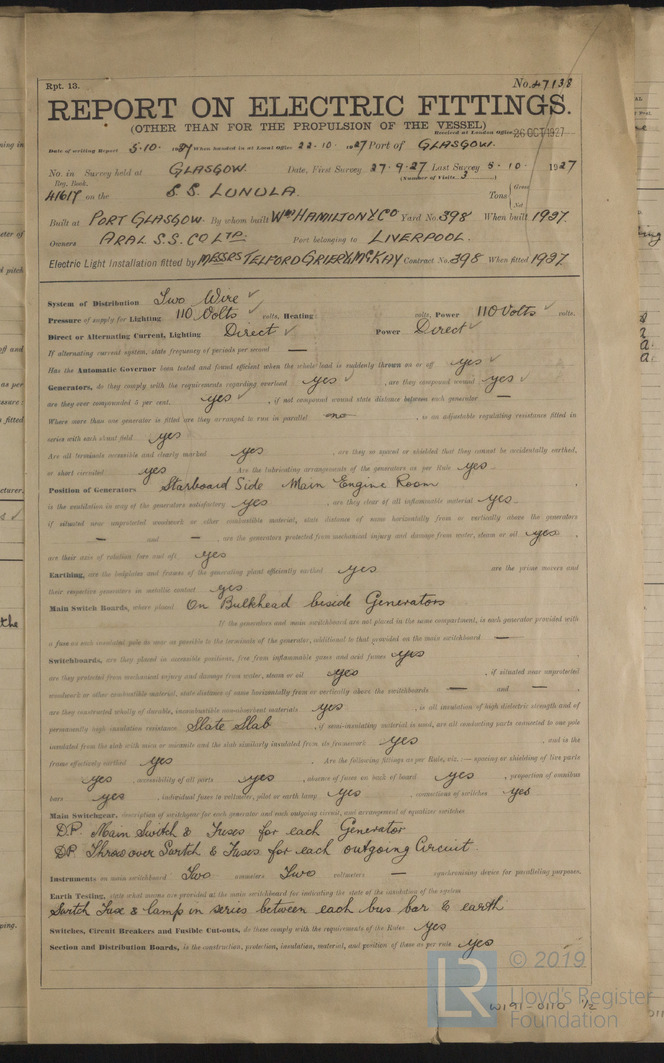 Rpt. 13.
No. 47138
REPORT ON ELECTRIC FITTINGS.
(OTHER THAN FOR THE PROPULSION OF THE VESSEL)
Received at London Office 26 OCT 1927
Date of writing Report 5.10. 1927 When handed in at Local Office 22.10. 1927 Port of GLASGOW.
No. in Survey held at GLASGOW. Date, First Survey 27.9.27 Last Survey 5.10. 1927
Reg. Book. (Number of Visits 3)
41617 on the S.S. LUNULA. Tons Gross
Net
Built at PORT GLASGOW. By whom built Wm HAMILTON & Co Yard No. 398 When built 1927.
Owners ARAL S.S. CO LTD. Port belonging to LIVERPOOL.
Electric Light Installation fitted by MESSRS TELFORD GRIER & McKAY Contract No. 398 When fitted 1927
System of Distribution Two Wire ✓
Pressure of supply for Lighting 110 Volts ✓ volts, Heating volts, Power 110 Volts ✓ volts.
Direct or Alternating Current, Lighting Direct ✓ Power Direct ✓
If alternating current system, state frequency of periods per second —
Has the Automatic Governor been tested and found efficient when the whole load is suddenly thrown on or off yes ✓
Generators, do they comply with the requirements regarding overload yes ✓, are they compound wound yes ✓
are they over compounded 5 per cent. yes ✓, if not compound wound state distance between each generator —
Where more than one generator is fitted are they arranged to run in parallel no, is an adjustable regulating resistance fitted in
series with each shunt field yes
Are all terminals accessible and clearly marked yes, are they so spaced or shielded that they cannot be accidentally earthed,
or short circuited yes Are the lubricating arrangements of the generators as per Rule yes
Position of Generators Starboard Side Main Engine Room
is the ventilation in way of the generators satisfactory yes, are they clear of all inflammable material yes
if situated near unprotected woodwork or other combustible material, state distance of same horizontally from or vertically above the generators
— and —, are the generators protected from mechanical injury and damage from water, steam or oil yes,
are their axes of rotation fore and aft yes
Earthing, are the bedplates and frames of the generating plant efficiently earthed yes are the prime movers and
their respective generators in metallic contact yes
Main Switch Boards, where placed On Bulkhead beside Generators
If the generators and main switchboard are not placed in the same compartment, is each generator provided with
a fuse on each insulated pole as near as possible to the terminals of the generator, additional to that provided on the main switchboard —
Switchboards, are they placed in accessible positions, free from inflammable gases and acid fumes yes
are they protected from mechanical injury and damage from water, steam or oil yes, if situated near unprotected
woodwork or other combustible material, state distance of same horizontally from or vertically above the switchboards — and —,
are they constructed wholly of durable, incombustible non-absorbent materials yes, is all insulation of high dielectric strength and of
permanently high insulation resistance Slate Slab, if semi-insulating material is used, are all conducting parts connected to one pole
insulated from the slab with mica or micanite and the slab similarly insulated from its framework yes, and is the
frame effectively earthed yes Are the following fittings as per Rule, viz.:— spacing or shielding of live parts
yes, accessibility of all parts yes, absence of fuses on back of board yes, proportion of omnibus
bars yes, individual fuses to voltmeter, pilot or earth lamp yes, connections of switches yes
Main Switchgear, description of switchgear for each generator and each outgoing circuit, and arrangement of equalizer switches
D.P. Main Switch & Fuses for each Generator
D.P. Throw over Switch & Fuses for each outgoing Circuit
Instruments on main switchboard Two ammeters Two voltmeters — synchronising device for paralleling purposes.
Earth Testing, state what means are provided at the main switchboard for indicating the state of the insulation of the system
Switch Fuse & lamp in series between each bus bar & earth
Switches, Circuit Breakers and Fusible Cut-outs, do these comply with the requirements of the Rules yes
Section and Distribution Boards, is the construction, protection, insulation, material, and position of these as per rule yes
© 2019
LR Lloyd's Register
Foundation
W191-0110 1/2